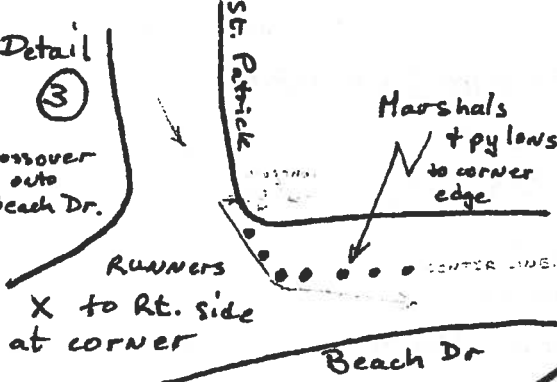 Detail
3
ossover
onto
each Dr.
St. Patrick
Marshals
+ pylons
to corner
edge
CENTER LINE
RUNNERS
X to Rt. side
at corner
Beach Dr